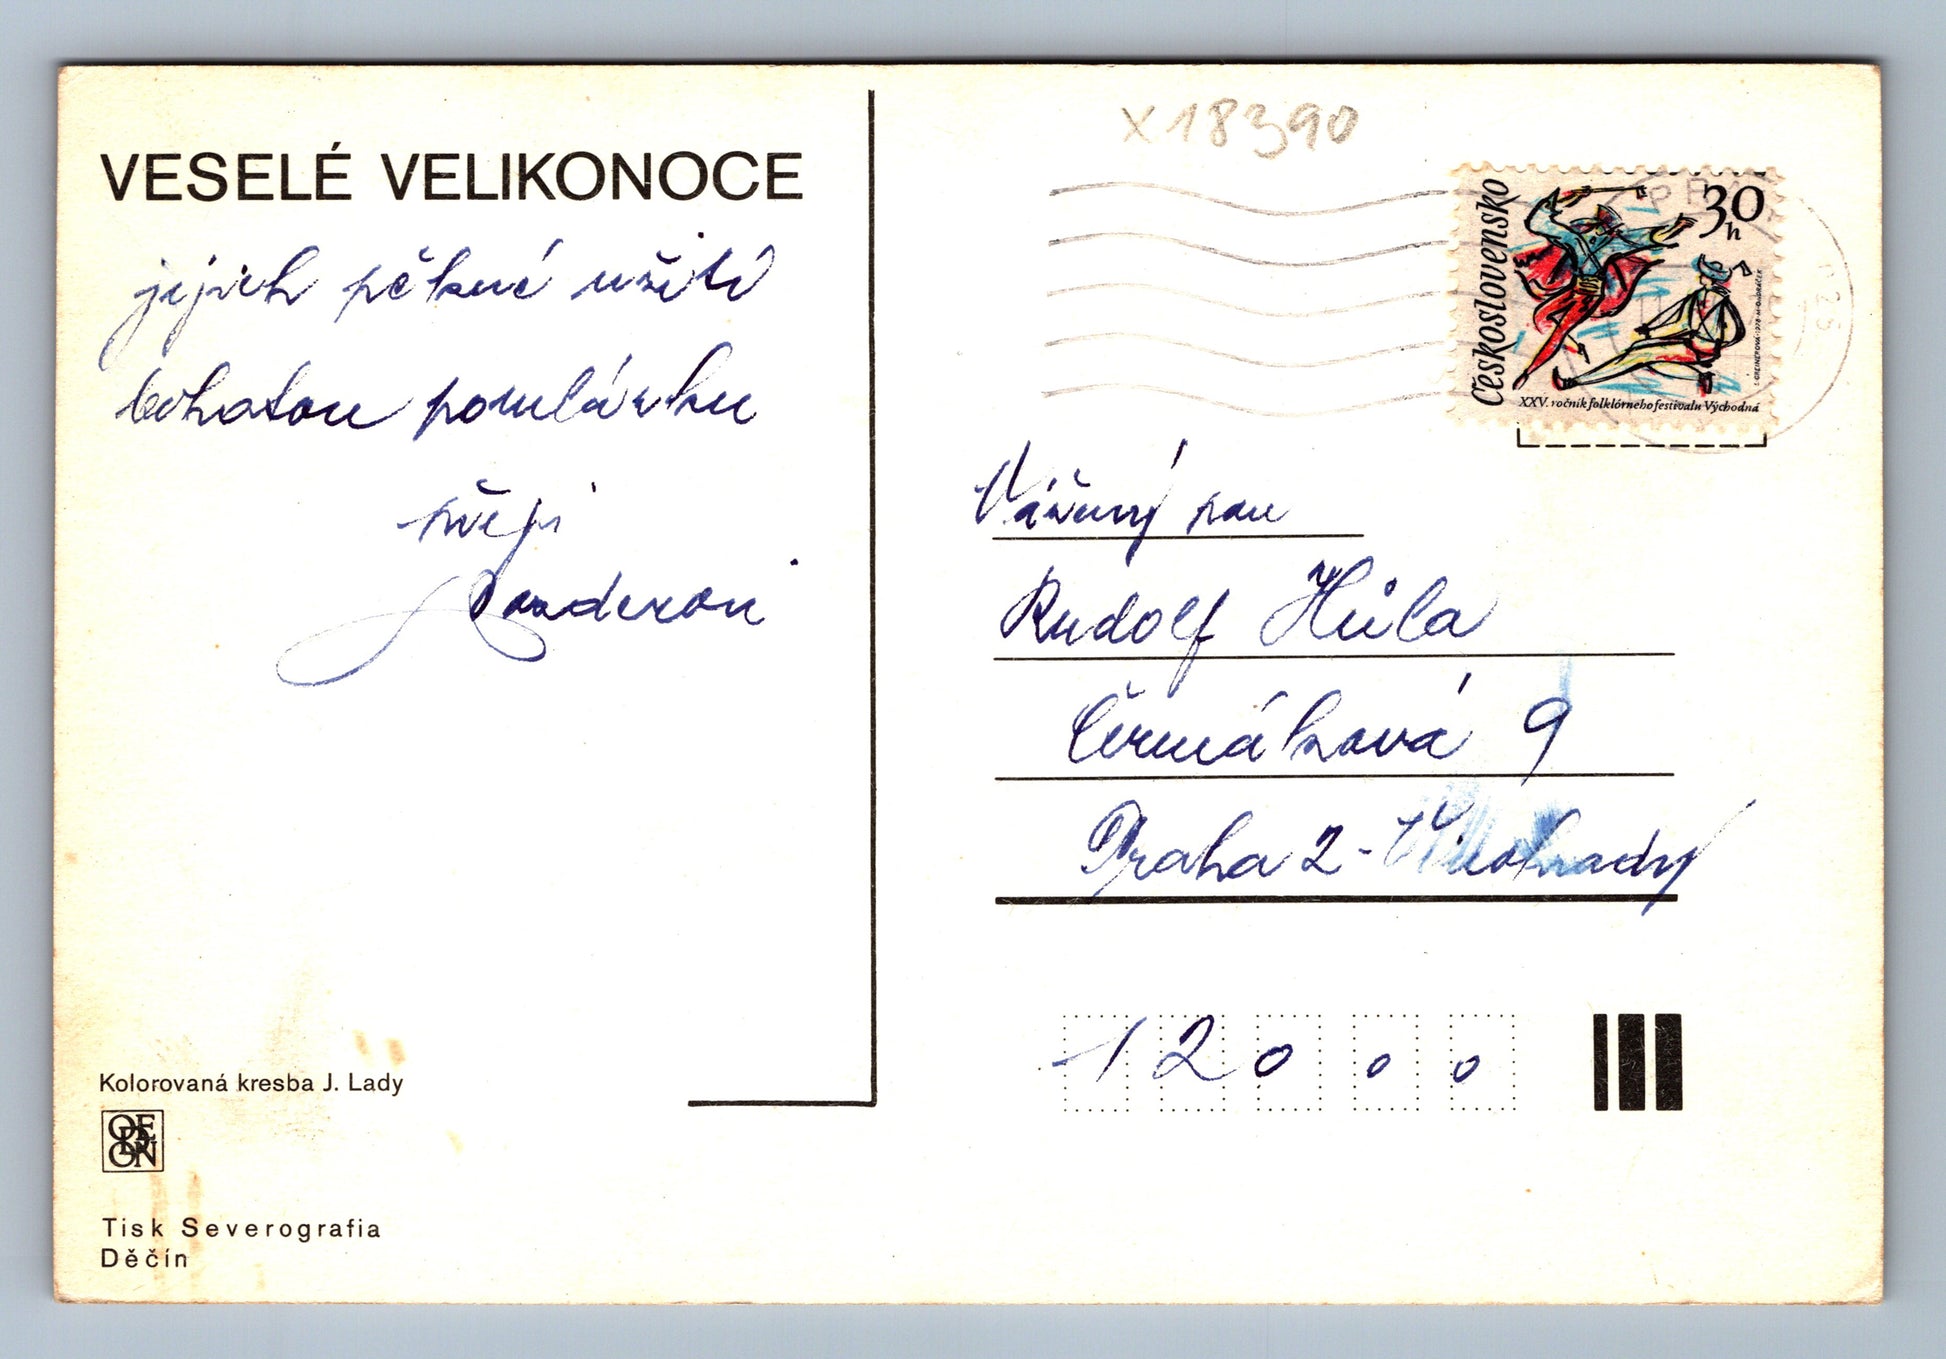 VESELÉ VELIKONOCE
jejich pěkné užití
bohatou pomlázku
přeji
X18390
Československo
30
h
XXV. ročník folklórneho festivalu Východná
Vážený pan
Rudolf Hůla
Čermáková 9
Praha 2 - Vinohrady
120 00
Kolorovaná kresba J. Lady
ODEON
Tisk Severografia
Děčín